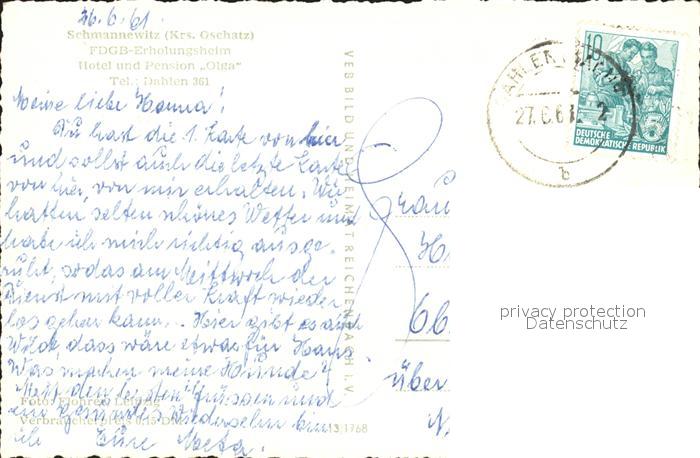 26.6.61.
Schmannewitz (Krs. Oschatz)
FDGB-Erholungsheim
Hotel und Pension „Olga"
Tel.: Dahlen 361
Meine liebe Hanna!
Du hast die 1. Karte von hier
und sollst auch die letzte Karte
von hier, von mir erhalten. Wir
hatten selten schönes Wetter und
habe ich mich richtig ausge-
ruht, sodas am Mittwoch der
Dienst mit voller Kraft wieder
los gehen kann. Hier gibt es auch
Wild, dass wäre etwas für Hans
Was machen meine Hunde?
Mit den besten Grüssen und
ein gesundes Wiedersehen bin
ich Eure Meta.
Foto: Leipzig
Verbraucherpreis 0,15 DM
13 1768
VEB BILD UND HEIMAT REICHENBACH I. V.
Frau
H
66
über
DAHLEN
27.6.61
b
10
5
DEUTSCHE
DEMOKRATISCHE REPUBLIK
privacy protection
Datenschutz